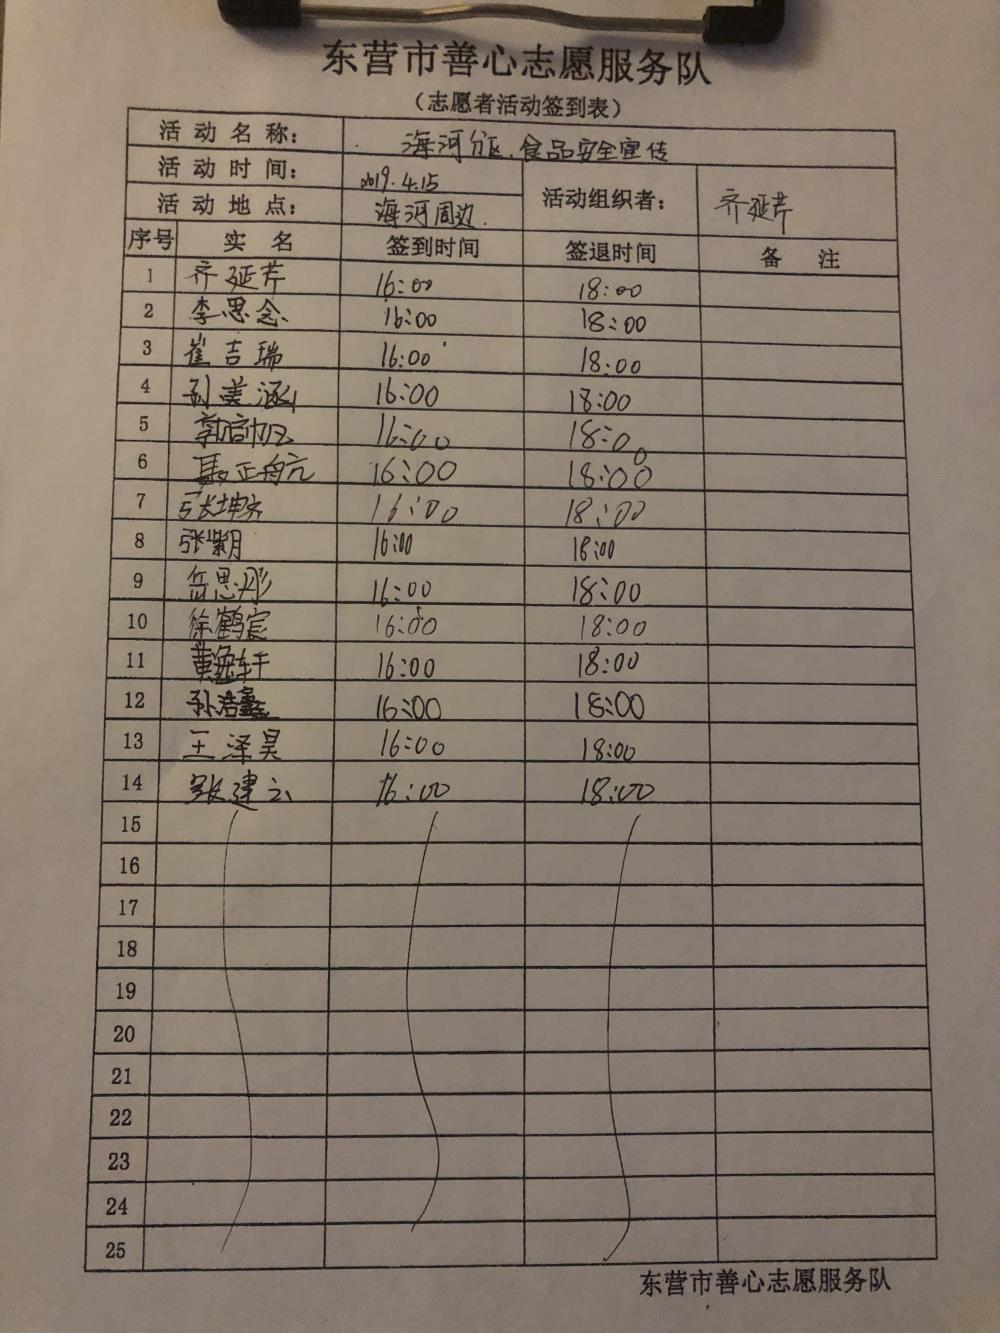 东营市善心志愿服务队
（志愿者活动签到表）
活动名称： 海河分区、食品安全宣传
活动时间： 2019.4.15 活动组织者： 齐延芹
活动地点： 海河周边.
序号 实名 签到时间 签退时间 备注
1 齐延芹 16:00 18:00
2 李思念 16:00 18:00
3 崔吉瑞 16:00 18:00
4 孙美涵 16:00 18:00
5 16:00 18:00
6 聂正航 16:00 18:00
7 张坤 16:00 18:00
8 张紫月 16:00 18:00
9 思彤 16:00 18:00
10 徐鹤宸 16:00 18:00
11 黄逸轩 16:00 18:00
12 孙浩鑫 16:00 18:00
13 王泽昊 16:00 18:00
14 张建云 16:00 18:00
15
16
17
18
19
20
21
22
23
24
25
东营市善心志愿服务队